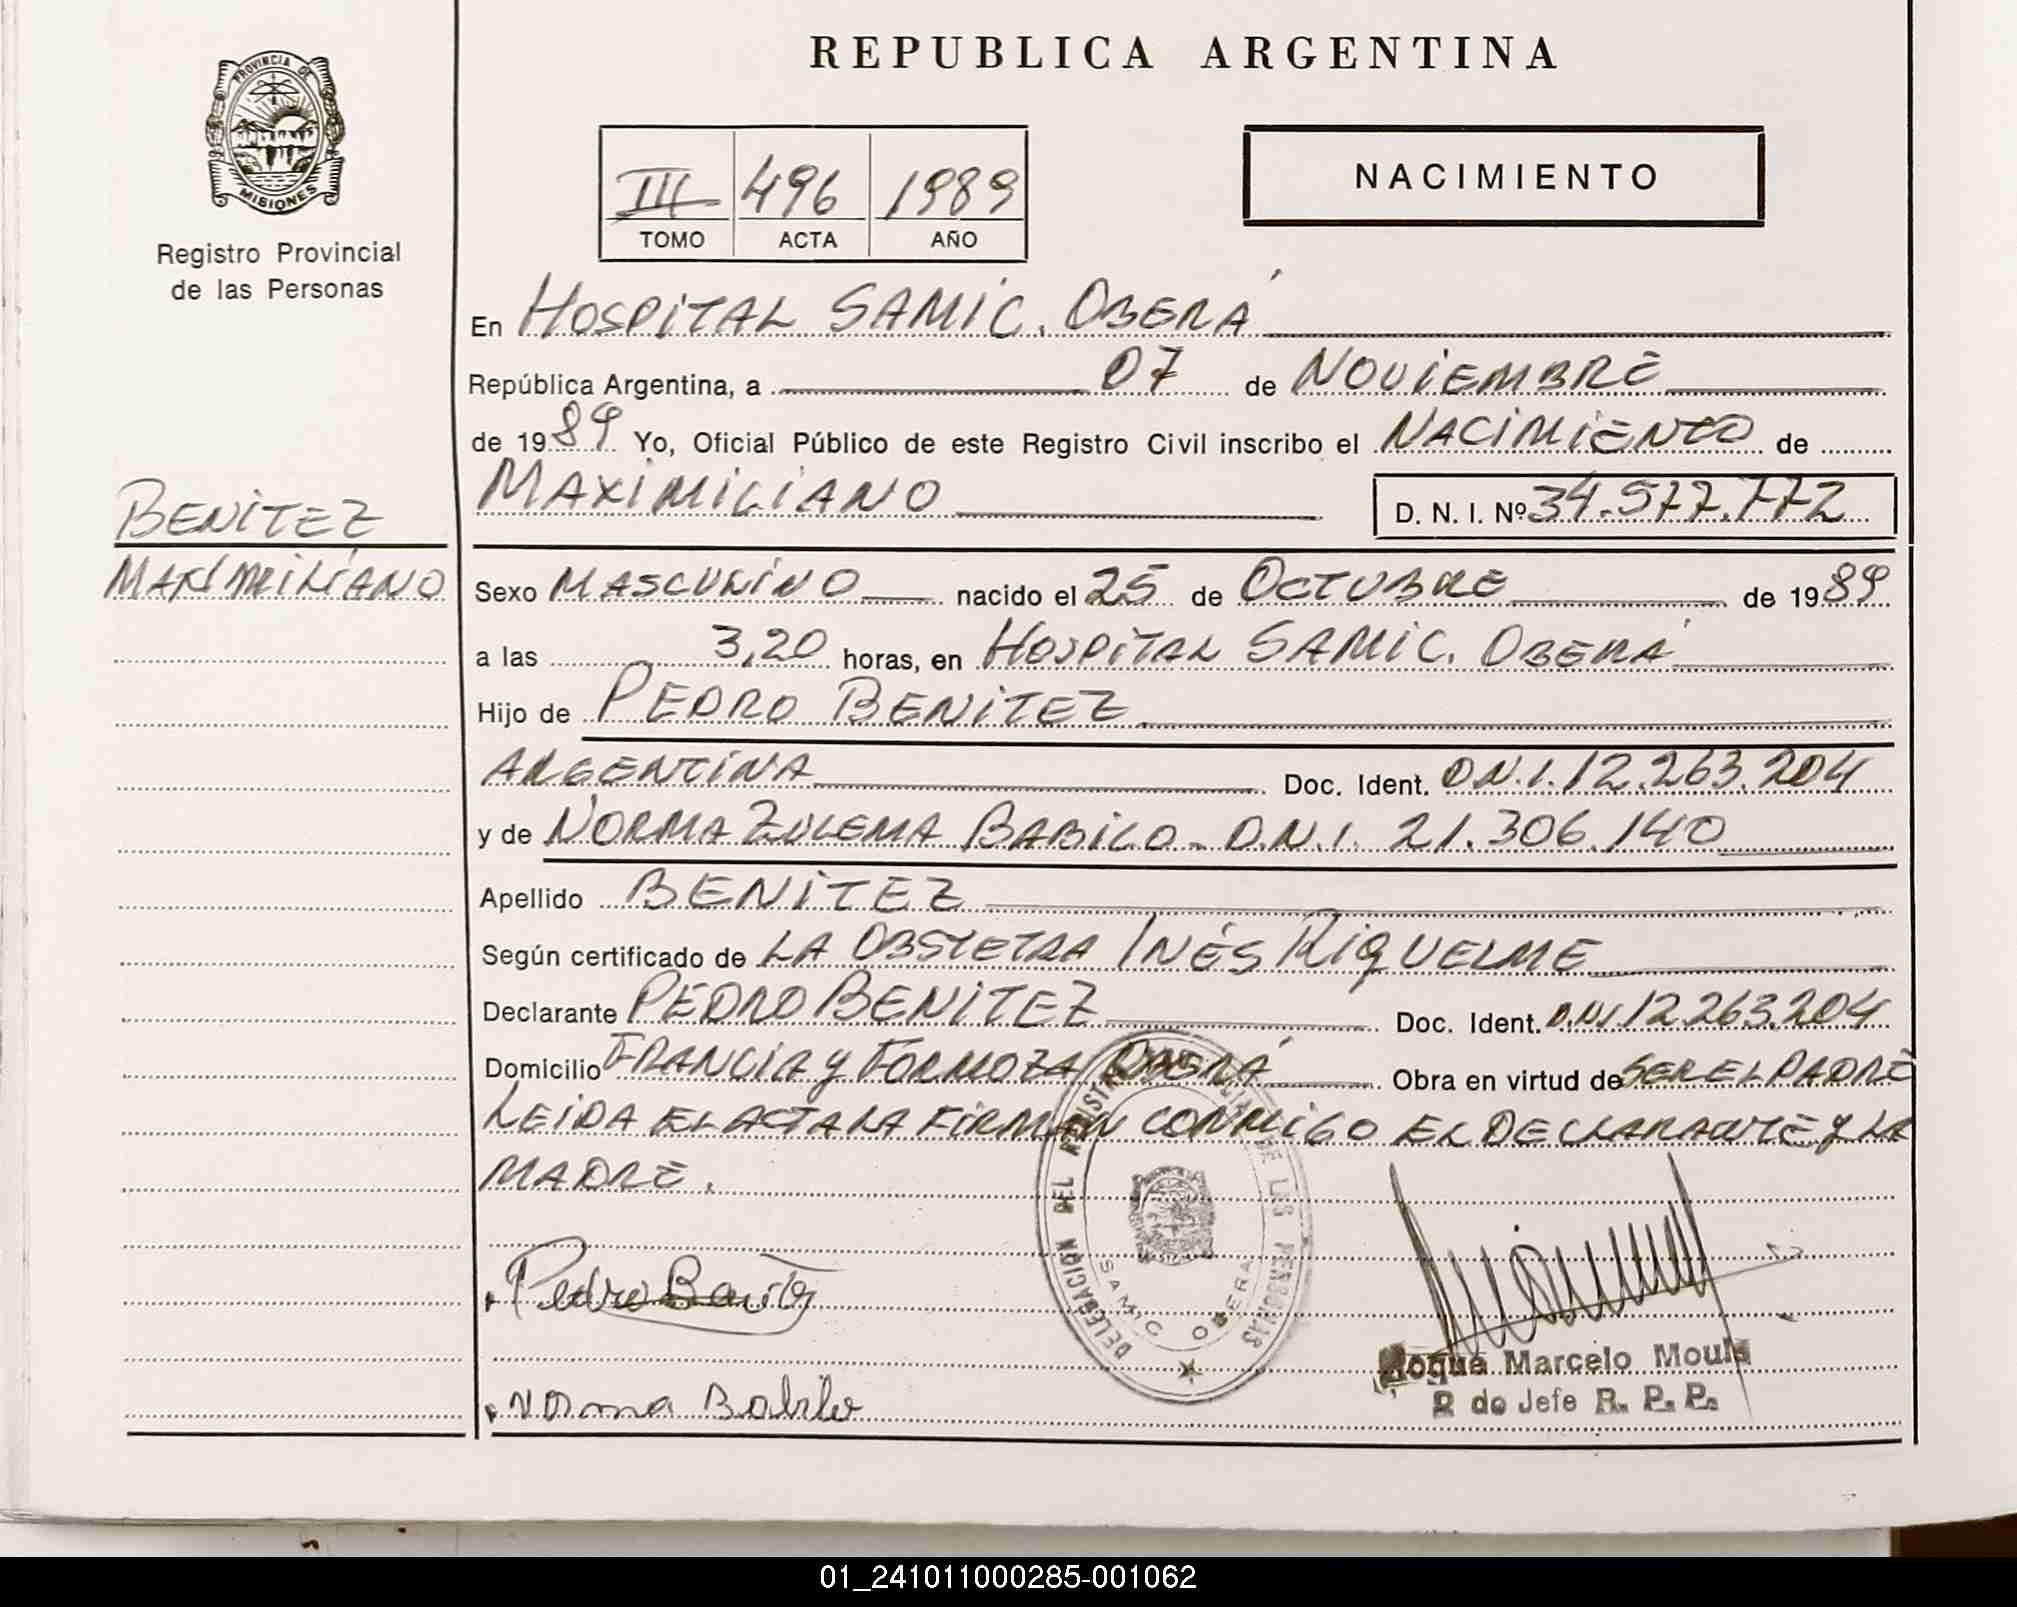 REPUBLICA ARGENTINA
PROVINCIA DE
MISIONES
Registro Provincial
de las Personas
NACIMIENTO
III 496 1989
TOMO ACTA AÑO
En HOSPITAL SAMIC. OBERÁ
República Argentina, a 07 de NOVIEMBRE
de 1989 Yo, Oficial Público de este Registro Civil inscribo el NACIMIENTO de
MAXIMILIANO D. N. I. Nº 34.577.772
BENITEZ
MAXIMILIANO
Sexo MASCULINO nacido el 25 de OCTUBRE de 1989
a las 3,20 horas, en HOSPITAL SAMIC. OBERÁ
Hijo de PEDRO BENITEZ
ARGENTINA Doc. Ident. D.N.I. 12.263.204
y de NORMA ZULEMA BABILO - D.N.I. 21.306.140
Apellido BENITEZ
Según certificado de LA OBSTETRA INÉS RIQUELME
Declarante PEDRO BENITEZ Doc. Ident. D.NI 12.263.204
Domicilio FRANCIA Y FORMOZA OBERÁ Obra en virtud de SER EL PADRE
LEIDA EL ACTA LA FIRMAN CONMIGO EL DECLARANTE Y LA
MADRE.
DELEGACION DEL REGISTRO DE LAS PERSONAS
SAMIC OBERA
Pedro Benitez
Roque Marcelo
2 do Jefe R. P. P.
Norma Babilo
01_241011000285-001062